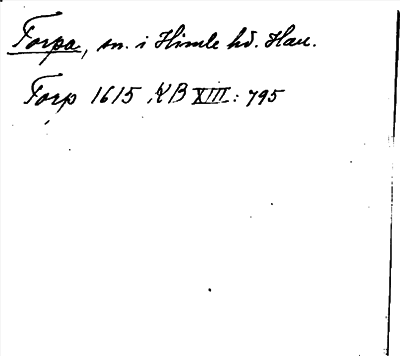 Torpa, sn. i Himle hd. Hall.
Torp 1615 KB XIII: 795